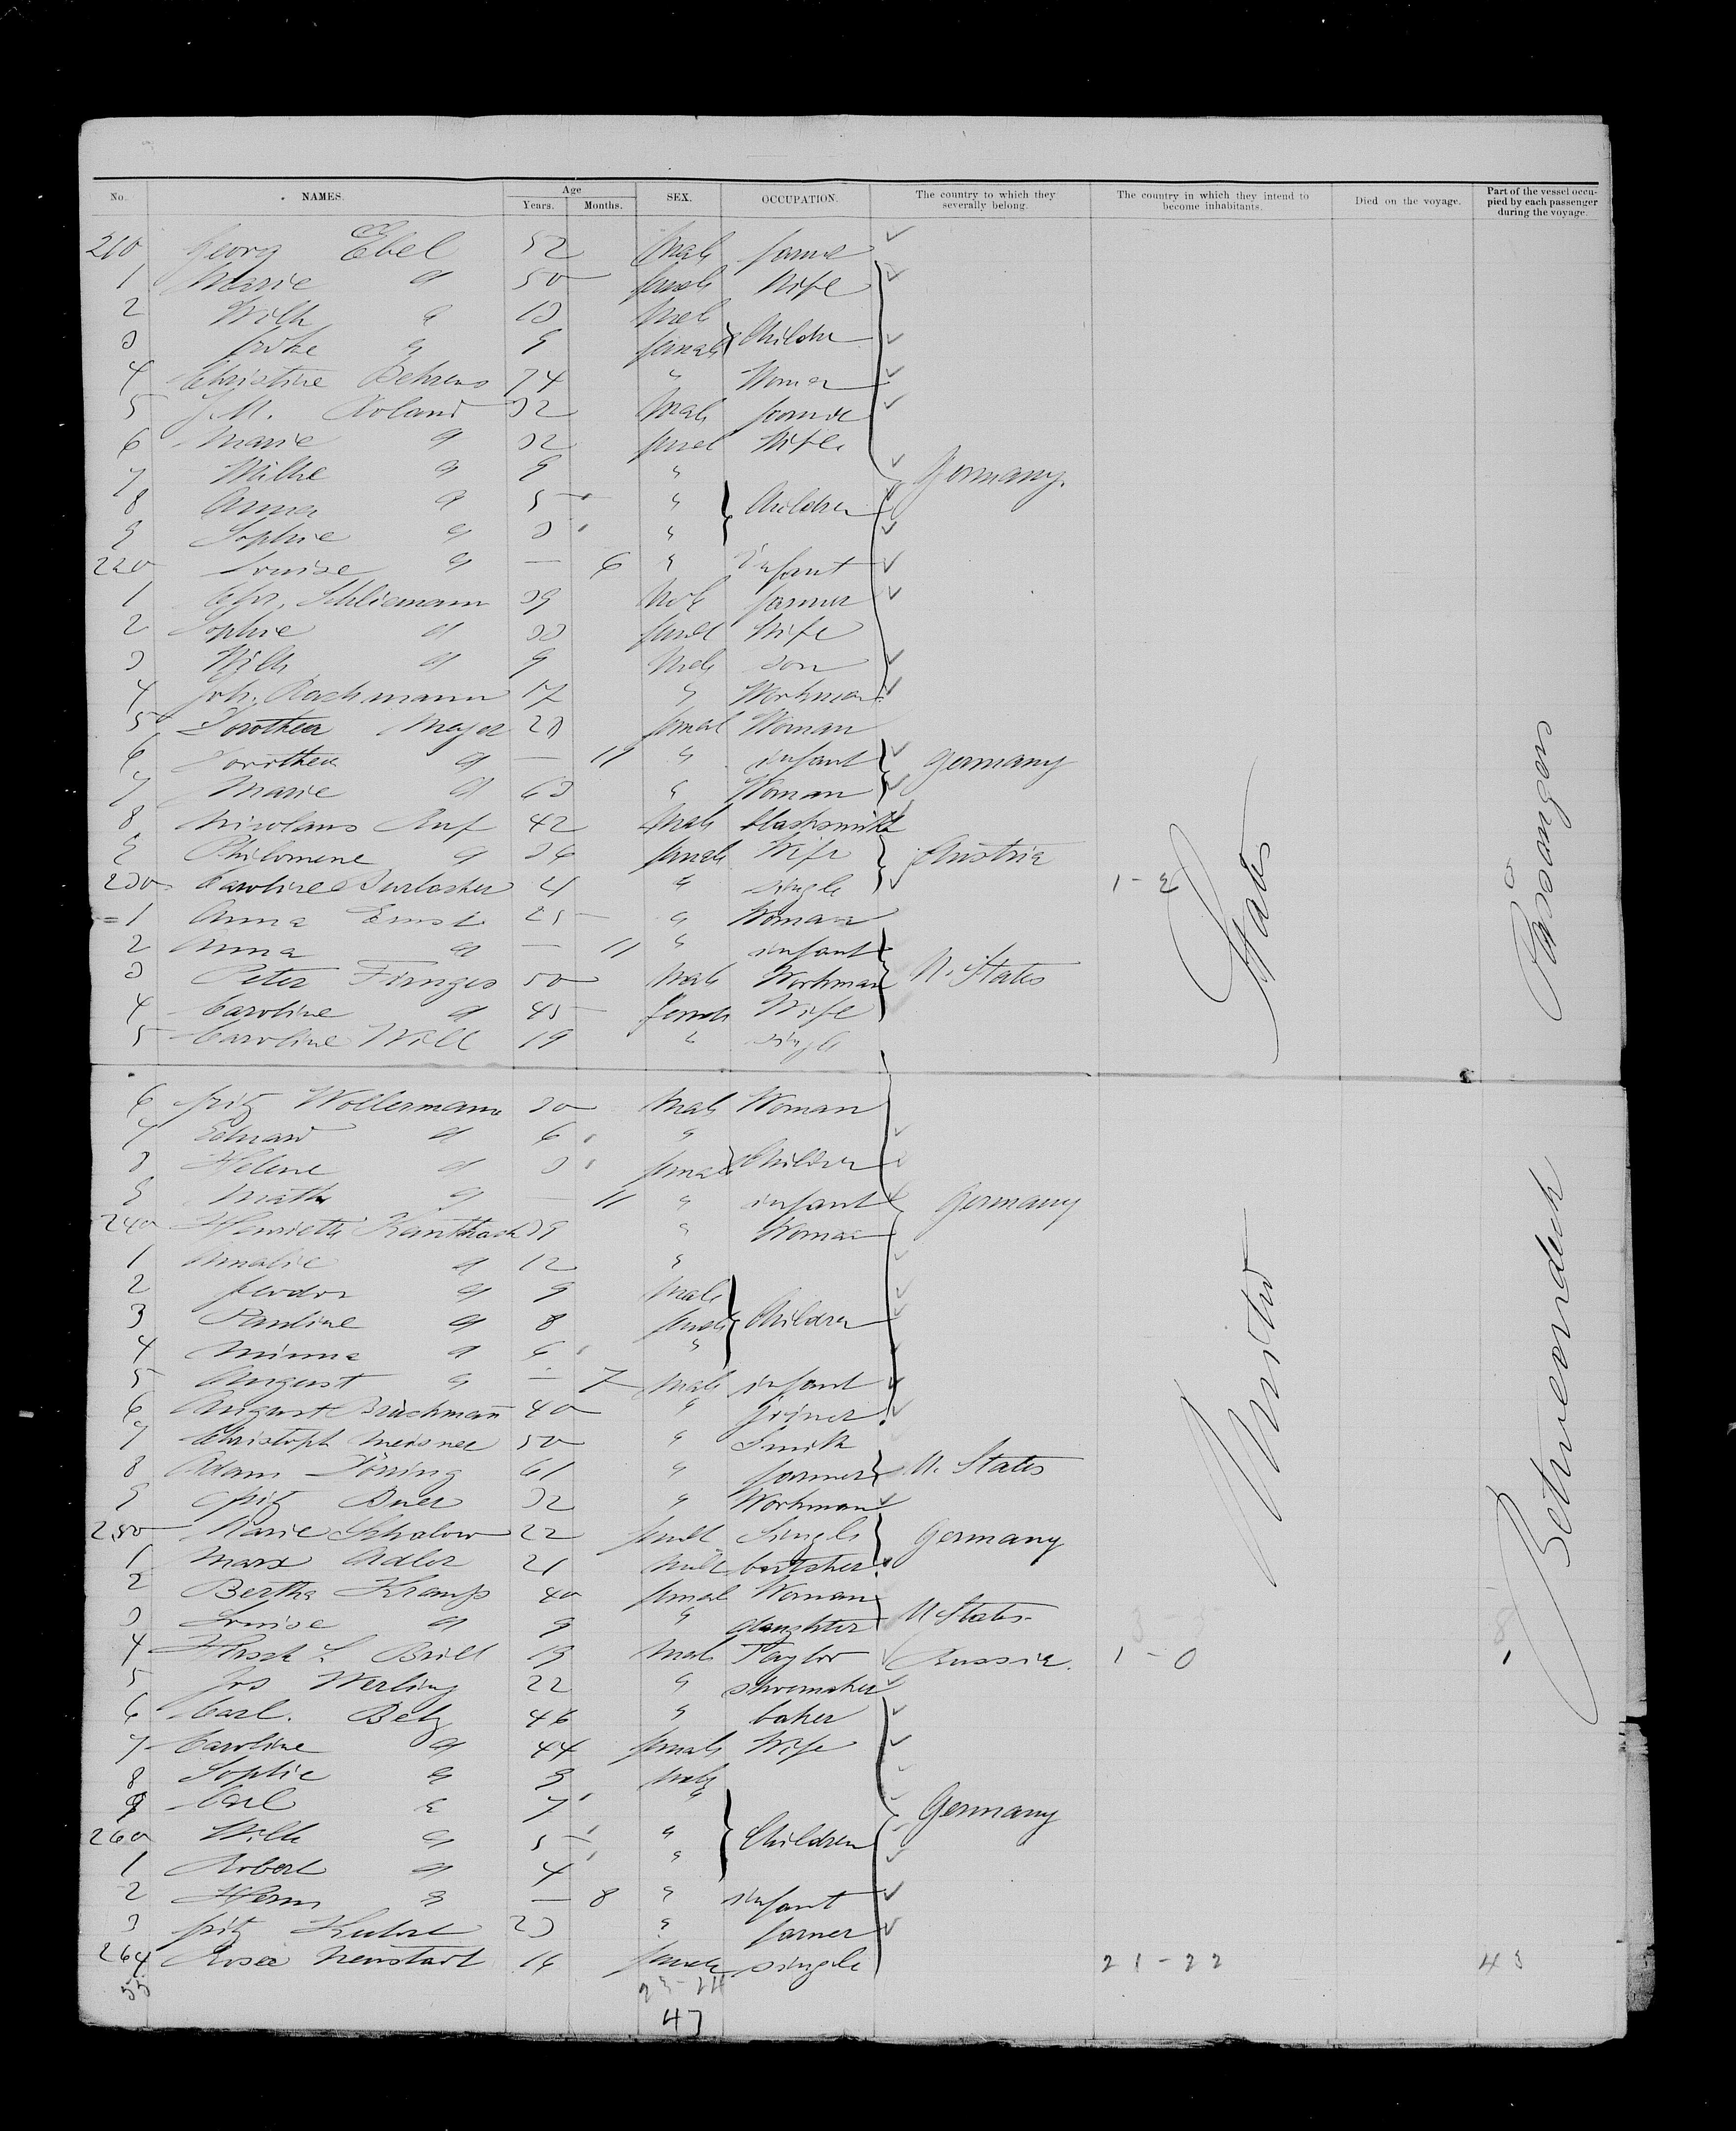 No. NAMES. Age Years. Months. SEX. OCCUPATION. The country to which they severally belong. The country in which they intend to become inhabitants. Died on the voyage. Part of the vessel occupied by each passenger during the voyage.
210 Georg Ebel 52 Male farmer
1 Marie " 50 female Wife
2 Wilh " 10 Male
3 " 9 female Children
4 Christine Behrens 74 " Woman
5 J. M. Roland 32 Male farmer
6 Marie " 32 femal Wife
7 " 9 " Germany.
8 Anna " 5 " Children
9 Sophie " 3 "
220 Louise " — 6 " infant
1 Chr. Schliemann 39 Male farmer
2 Sophie " 33 femal Wife
3 Wilh " 9 Male son
4 Joh. Rachmann 17 " Workman
5 Dorothea Meyer 23 femal Woman
6 Dorothea " — 11 " infant Germany
7 Marie " 63 " Woman
8 Nicolaus Ruf 42 Male blacksmith
9 Philomene " 36 female Wife Austria
230 Caroline 21 " single 1-2
1 Anna Ernst 25 " Woman
2 Anna " — 11 " infant
3 Peter 50 Male Workman U. States
4 Caroline " 45 female Wife
5 Caroline Will 19 " single
6 Fritz Wollermann 30 Male Woman
7 Eduard " 6 "
8 Helene " 3 female Children
9 Math " — 11 " infant Germany
240 Henriette 39 " Woman
1 Amalie " 12 "
2 " 9 Male
3 Pauline " 8 female Children
4 Minna " 6 "
5 August " — 7 Male infant
6 August Brüchmann 40 " joiner
7 Christoph Meisner 50 " Smith
8 Adam Döring 61 " farmer U. States
9 Fritz 32 " Workman
250 Marie Schalow 22 femal Single Germany
1 Marx Adler 21 Male butcher
2 Bertha Kramp 40 femal Woman
3 Louise " 9 " daughter U States
4 Hirsch L Brill 19 Male Taylor Russia. 1-0
5 Jos Werling 22 " shoemaker
6 Carl. Betz 46 " baker
7 Caroline " 44 female Wife
8 Sophie " 9 Male
9 Carl " 7 " Germany
260 Wilh " 5 " Children
1 Robert " 4 "
2 Herm " — 8 " infant
3 Fritz 23 " farmer
264 Rosa Neustadt 16 female single 21-22 43
55
23-24
47
United States
Betweendeck Passangers